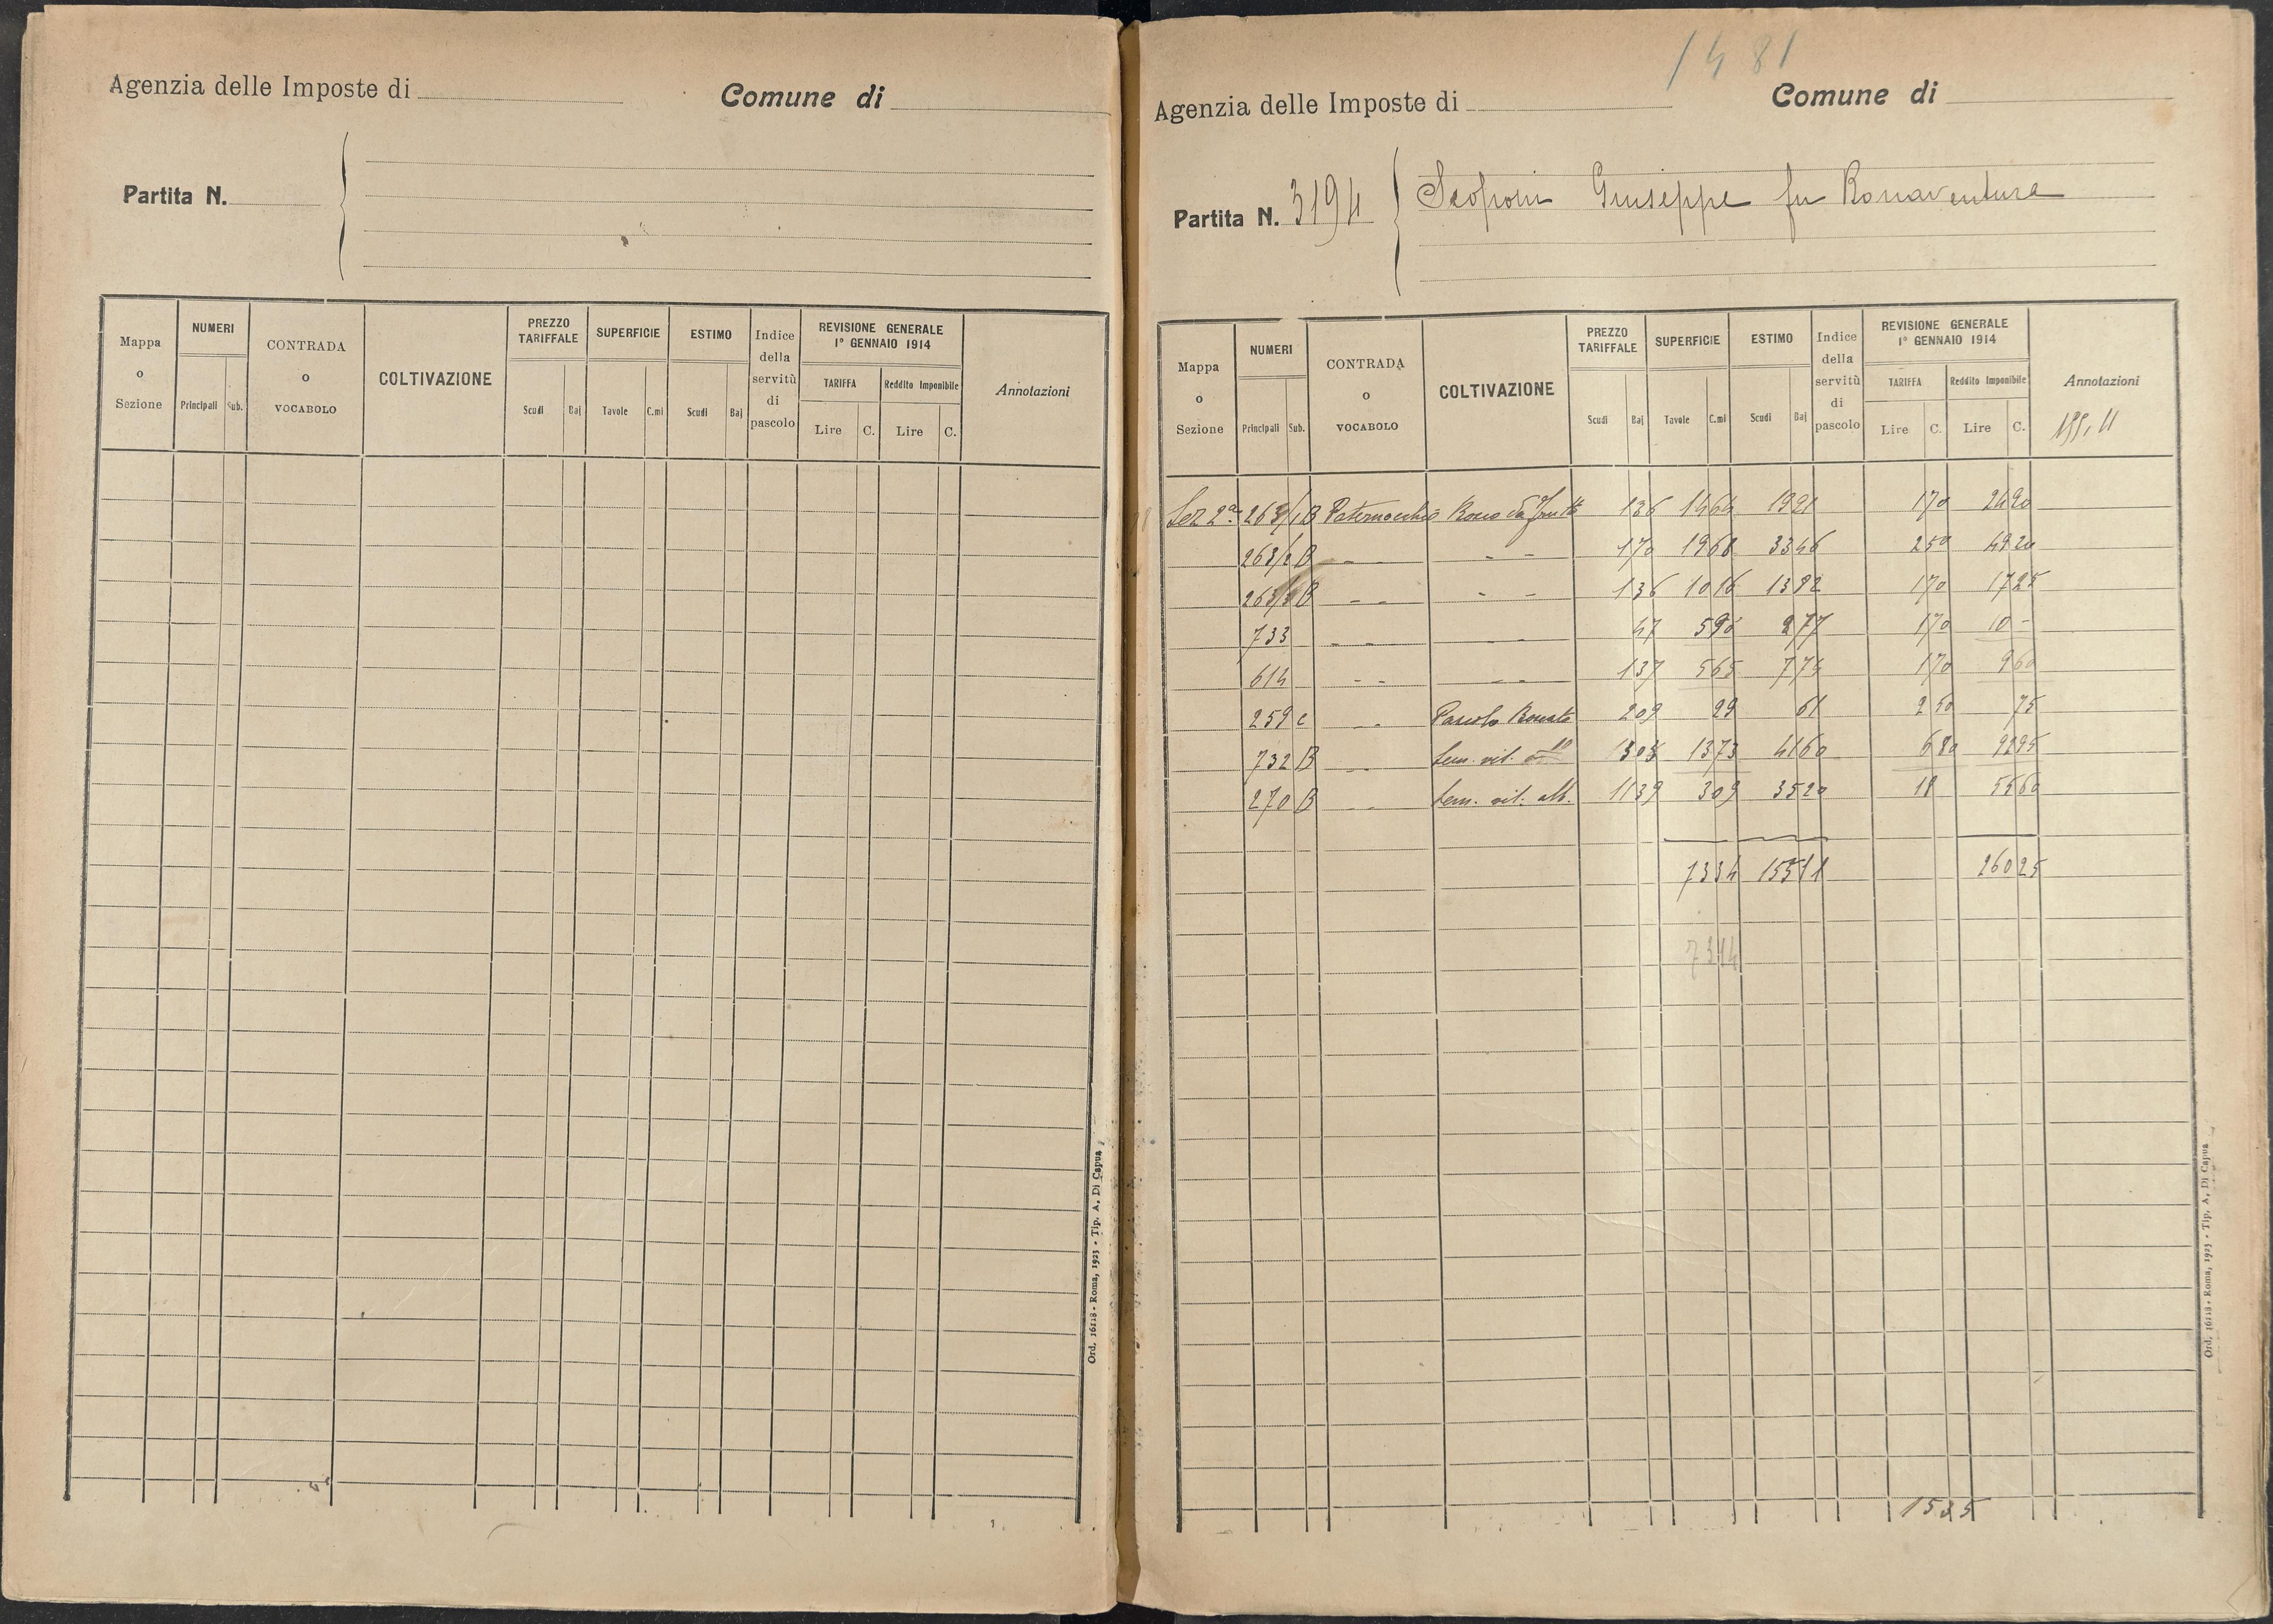 Agenzia delle Imposte di
Comune di
Partita N.
Mappa o Sezione
NUMERI
Principali
Sub.
CONTRADA o VOCABOLO
COLTIVAZIONE
PREZZO TARIFFALE
Scudi
Baj
SUPERFICIE
Tavole
C.mi
ESTIMO
Scudi
Baj
Indice della servitù di pascolo
REVISIONE GENERALE 1° GENNAIO 1914
TARIFFA
Reddito Imponibile
Lire
C.
Lire
C.
Annotazioni
Ord. 16118 - Roma, 1923 - Tip. A. Di Capua
1481
Agenzia delle Imposte di
Comune di
Partita N. 3194
Giuseppe fu Bonaventura
Mappa o Sezione
NUMERI
Principali
Sub.
CONTRADA o VOCABOLO
COLTIVAZIONE
PREZZO TARIFFALE
Scudi
Baj
SUPERFICIE
Tavole
C.mi
ESTIMO
Scudi
Baj
Indice della servitù di pascolo
REVISIONE GENERALE 1° GENNAIO 1914
TARIFFA
Reddito Imponibile
Lire
C.
Lire
C.
Annotazioni
Sez 2ª 263/1 B Paternocchio Bosco da frutto 136 1464 1991 170 2490
263/2 B - - - - 170 1968 3346 250 4920
263/3 B - - - - 136 1016 1382 170 1725
733 - - - - 47 590 277 170 10 -
614 - - - - 137 565 774 170 960
259 c - - Pascolo Boscato 209 29 61 250 75
732 B - - Sem. vit. 303 1373 4160 680 9295
270 B - - Sem. vit. alb. 1139 309 3520 18 5560
7334 15511 26025
7314
1535
Ord. 16118 - Roma, 1923 - Tip. A. Di Capua